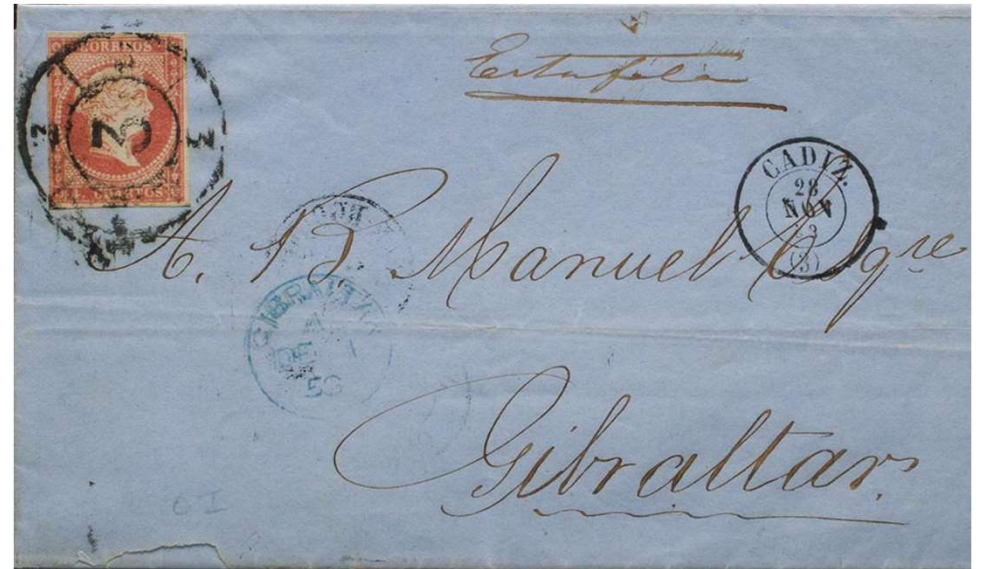 CORREOS
2
Estafeta
CADIZ.
28
NOV
(3)
A. B Manuel Esqre
GIBRALTAR
Gibraltar.